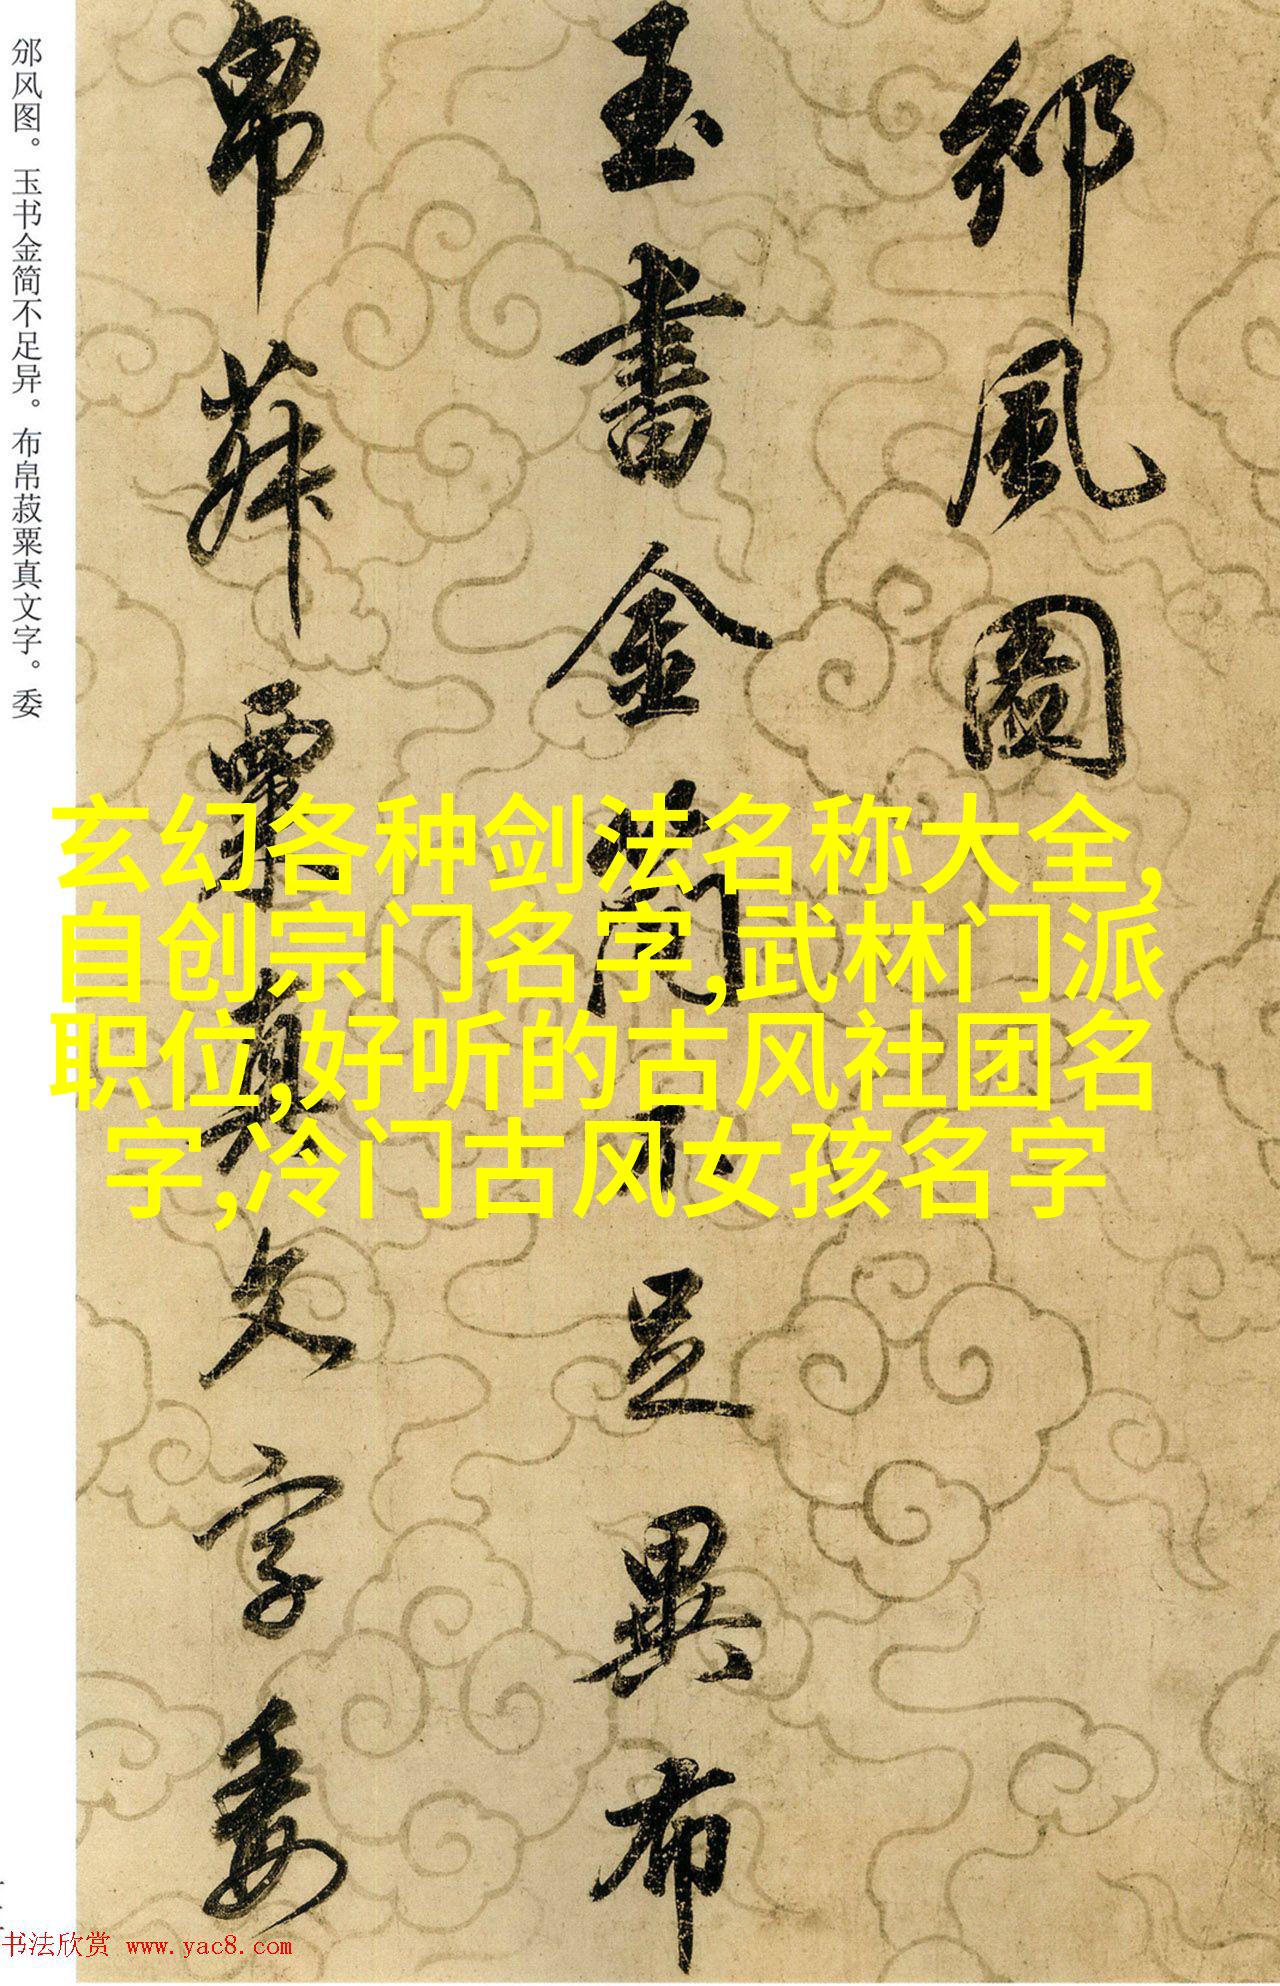 邠風圖
玉書金簡不足異布
帛菽粟真文字委
邠风图。玉书金简不足异。布帛菽粟真文字。委
玄幻各种剑法名称大全,
自创宗门名字,武林门派
职位,好听的古风社团名
字,冷门古风女孩名字
书法欣赏 www.yac8.com